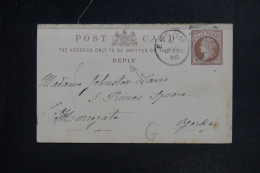 POST CARD
THE ADDRESS ONLY TO BE WRITTEN ON THIS
REPLY
Madame Johnston Davis
5 Princes Square
Harrogate
Yorks
G